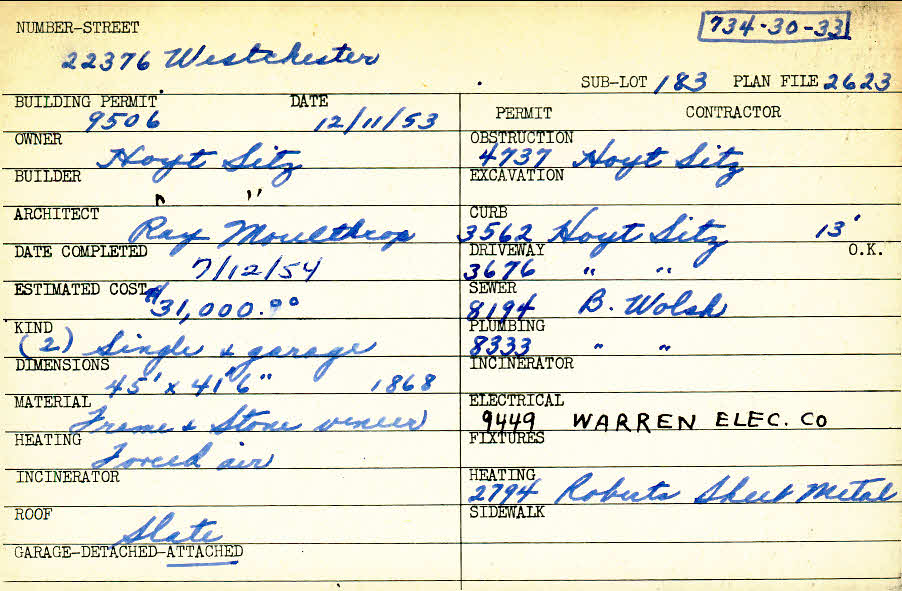 NUMBER-STREET
734-30-33
22376 Westchester
SUB-LOT 183 PLAN FILE 2623
BUILDING PERMIT DATE
9506 12/11/53
OWNER
Hoyt Sitz
BUILDER
" "
ARCHITECT
Ray Moulthrop
DATE COMPLETED
7/12/54
ESTIMATED COST
$31,000.00
KIND
(2) Single & garage
DIMENSIONS
45' x 41'6" 1868
MATERIAL
Frame & Stone veneer
HEATING
Forced air
INCINERATOR
ROOF
Slate
GARAGE-DETACHED-ATTACHED
PERMIT CONTRACTOR
OBSTRUCTION
4737 Hoyt Sitz
EXCAVATION
CURB
3562 Hoyt Sitz 13'
DRIVEWAY O.K.
3676 " "
SEWER
8194 B. Wolsh
PLUMBING
8333 " "
INCINERATOR
ELECTRICAL
9449 WARREN ELEC. CO
FIXTURES
HEATING
2794 Roberts Sheet Metal
SIDEWALK